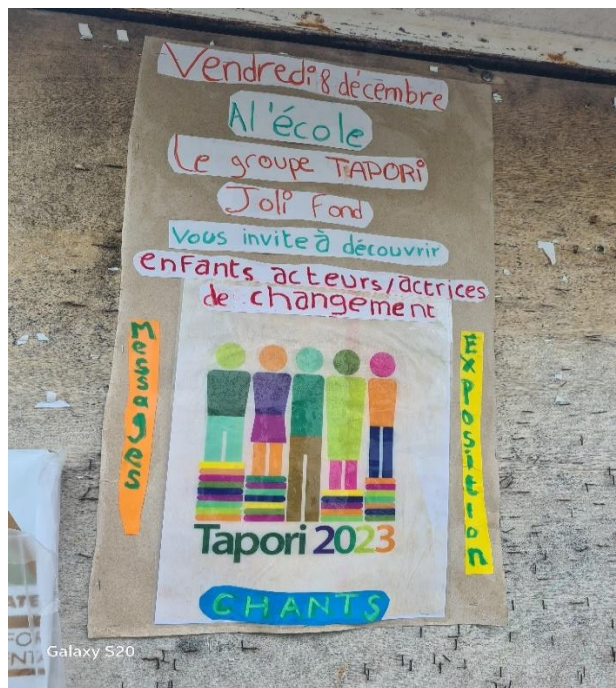 Vendredi 8 décembre
A l'école
Le groupe TAPORI
Joli Fond
Vous invite à découvrir
enfants acteurs/actrices
de changement
Messages
Exposition
Tapori 2023
CHANTS
ATE
FO
NT
Galaxy S20